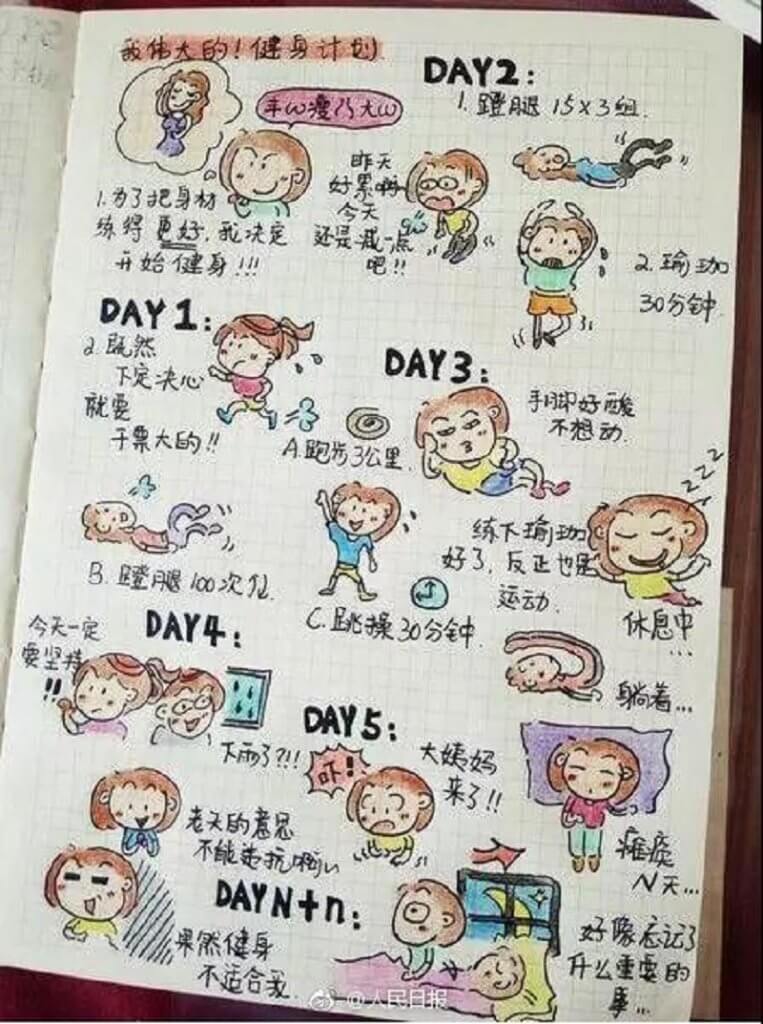 我伟大的!健身计划
1.为了把身材
练得更好,我决定
开始健身!!!
DAY1:
2.既然
下定决心
就要
干票大的!!
A.跑步3公里
B.蹬腿100次
C.跳操30分钟
DAY2:
昨天
好累啊
今天
还是减一点
吧!!
1.蹬腿15×3组
2.瑜珈
30分钟
DAY3:
手脚好酸
不想动
练下瑜珈
好了,反正也是
运动.
zzz
休息中
...
躺着...
DAY4:
今天一定
要坚持
!!
下雨了?!!
老天的意思
不能违抗啊
果然健身
不适合我
DAY5:
吓!
大姨妈
来了!!
瘫痪
N天...
DAYN+n:
好像忘记了
什么重要的
事...
@人民日报